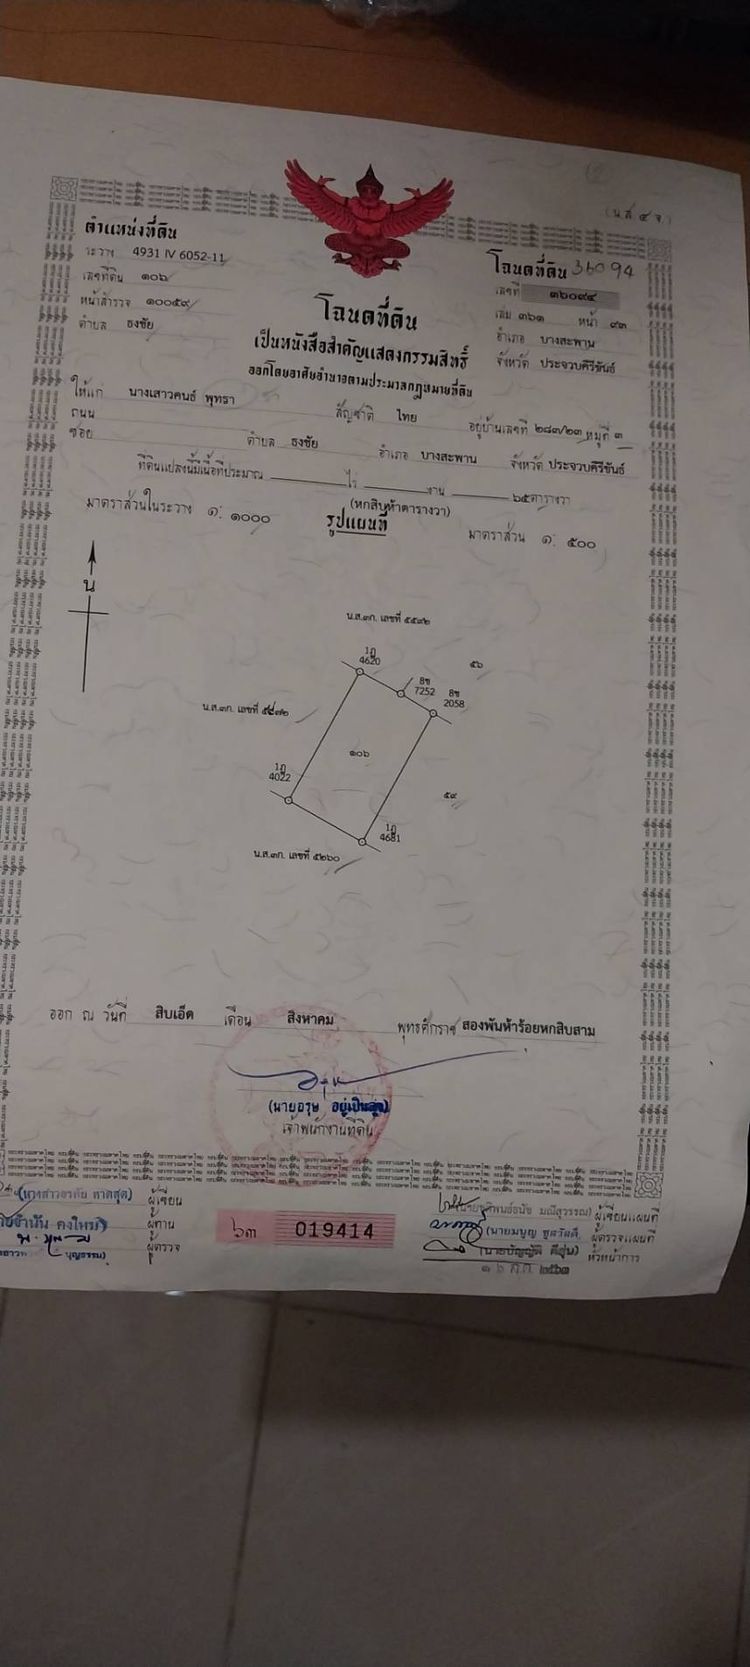 (น.ส. ๔ จ.)
ตำแหน่งที่ดิน
ระวาง 4931 IV 6052-11
เลขที่ดิน ๑๐๖
หน้าสำรวจ ๑๐๐๕๙
ตำบล ธงชัย
โฉนดที่ดิน 36094
เลขที่ ๓๖๐๙๔
เล่ม ๓๖๑ หน้า ๙๓
อำเภอ บางสะพาน
จังหวัด ประจวบคีรีขันธ์
โฉนดที่ดิน
เป็นหนังสือสำคัญแสดงกรรมสิทธิ์
ออกโดยอาศัยอำนาจตามประมวลกฎหมายที่ดิน
ให้แก่ นางเสาวคนธ์ พุทธา สัญชาติ ไทย อยู่บ้านเลขที่ ๒๘๓/๒๓ หมู่ที่ ๓
ถนน
ซอย ตำบล ธงชัย อำเภอ บางสะพาน จังหวัด ประจวบคีรีขันธ์
ที่ดินแปลงนี้มีเนื้อที่ประมาณ ไร่ งาน ๖๕ ตารางวา
(หกสิบห้าตารางวา)
มาตราส่วนในระวาง ๑: ๑๐๐๐ รูปแผนที่ มาตราส่วน ๑: ๕๐๐
น
น.ส.๓ก. เลขที่ ๕๕๙๒
1ฎ
4620
๕๖
8ซ
7252
8ซ
2058
น.ส.๓ก. เลขที่
๑๐๖
1ฎ
4022
๕๙
1ฎ
4681
น.ส.๓ก. เลขที่ ๕๒๖๐
ออก ณ วันที่ สิบเอ็ด เดือน สิงหาคม พุทธศักราช สองพันห้าร้อยหกสิบสาม
(นายอรุษ อยู่เป็นสุข)
เจ้าพนักงานที่ดิน
ผู้เขียน
ผู้ทาน
ผู้ตรวจ
๖๓ 019414
ผู้เขียนแผนที่
ผู้ตรวจแผนที่
หัวหน้าการ